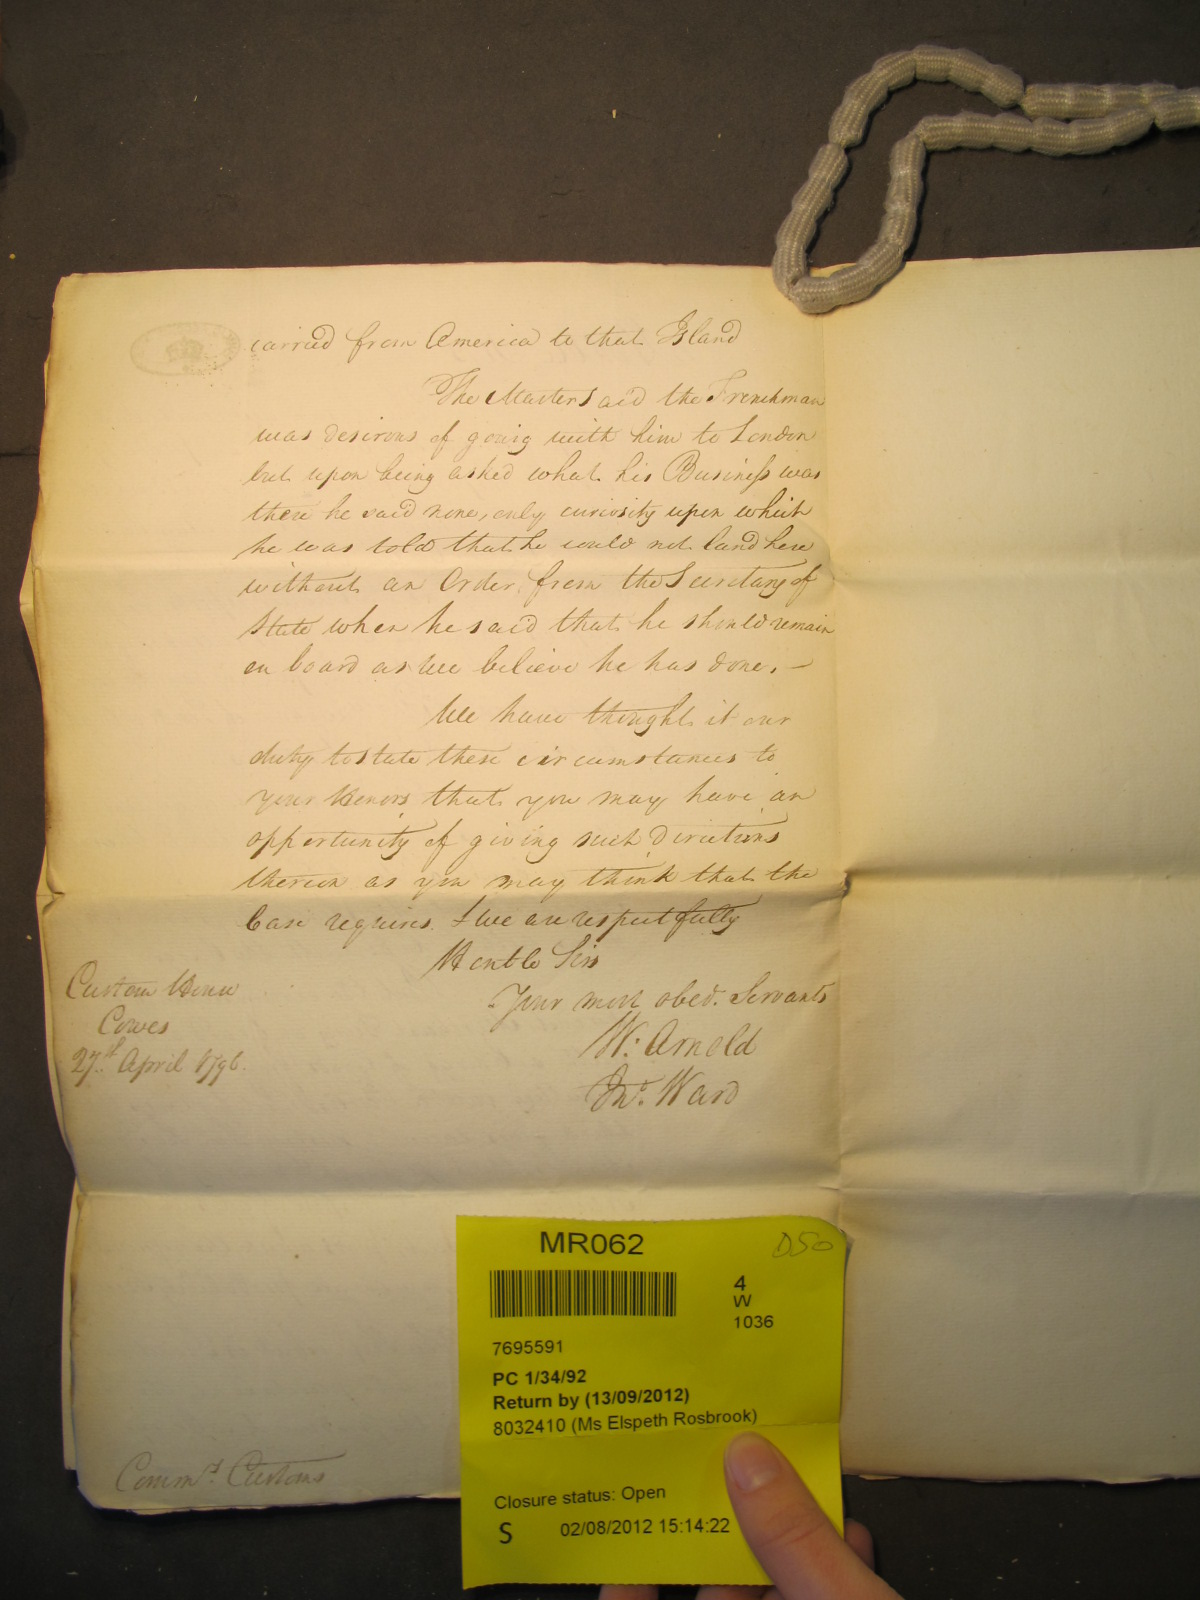 carried from America to that Island
The Master said the Frenchman
was desirous of going with him to London
but upon being asked what his Business was
there he said none, only curiosity upon which
he was told that he could not land here
without an Order from the Secretary of
State when he said that he should remain
on board as we believe he has done. —
We have thought it our
duty to state these circumstances to
your Honors that you may have an
opportunity of giving such directions
thereon as you may think that the
Case requires. & we are respectfully
Honble Sirs
Your most obed. Servants
W. Arnold
Jno. Ward
Custom House
Cowes
27th April 1796.
Commrs. Customs
MR062
D50
4
W
1036
7695591
PC 1/34/92
Return by (13/09/2012)
8032410 (Ms Elspeth Rosbrook)
Closure status: Open
S 02/08/2012 15:14:22